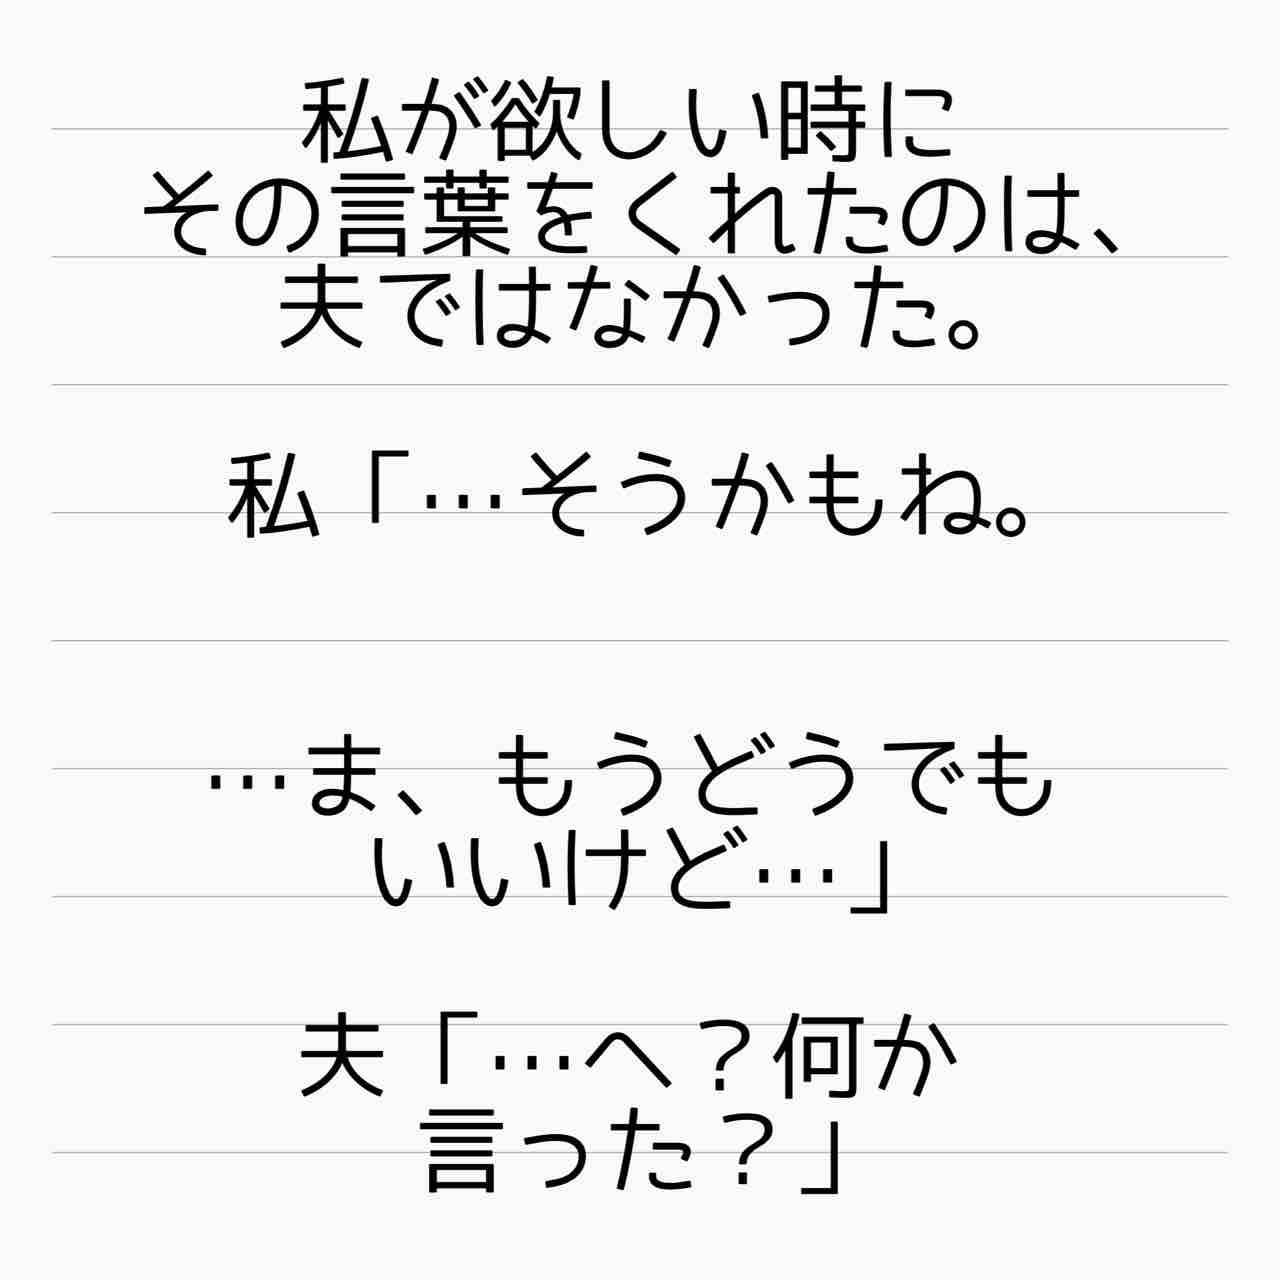 私が欲しい時に
その言葉をくれたのは、
夫ではなかった。
私「…そうかもね。
…ま、もうどうでも
いいけど…」
夫「…へ？何か
言った？」